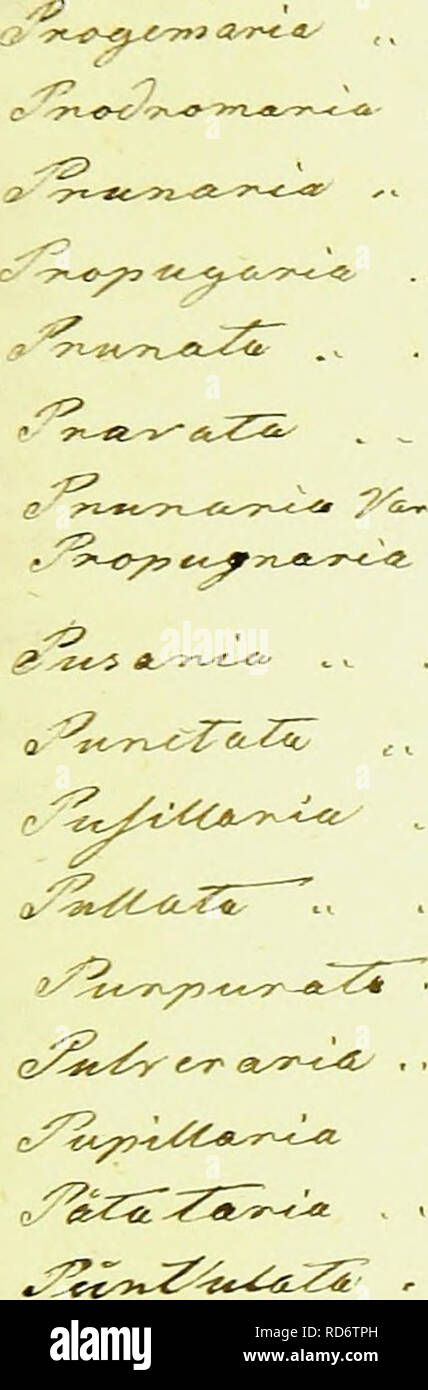 Progemaria ..
Prodromaria
Prunaria ..
Propugaria .
Prunata .. .
Pravata . .
Prunaria Var
Propugnaria
Pusaria .. .
Punctata ..
Pusillaria .
Pullata .. .
Purpurata .
Pulveraria ..
Pupillaria
Pätataria . .
Pünctulata .
alamy
Image ID: RD6TPH
www.alamy.com